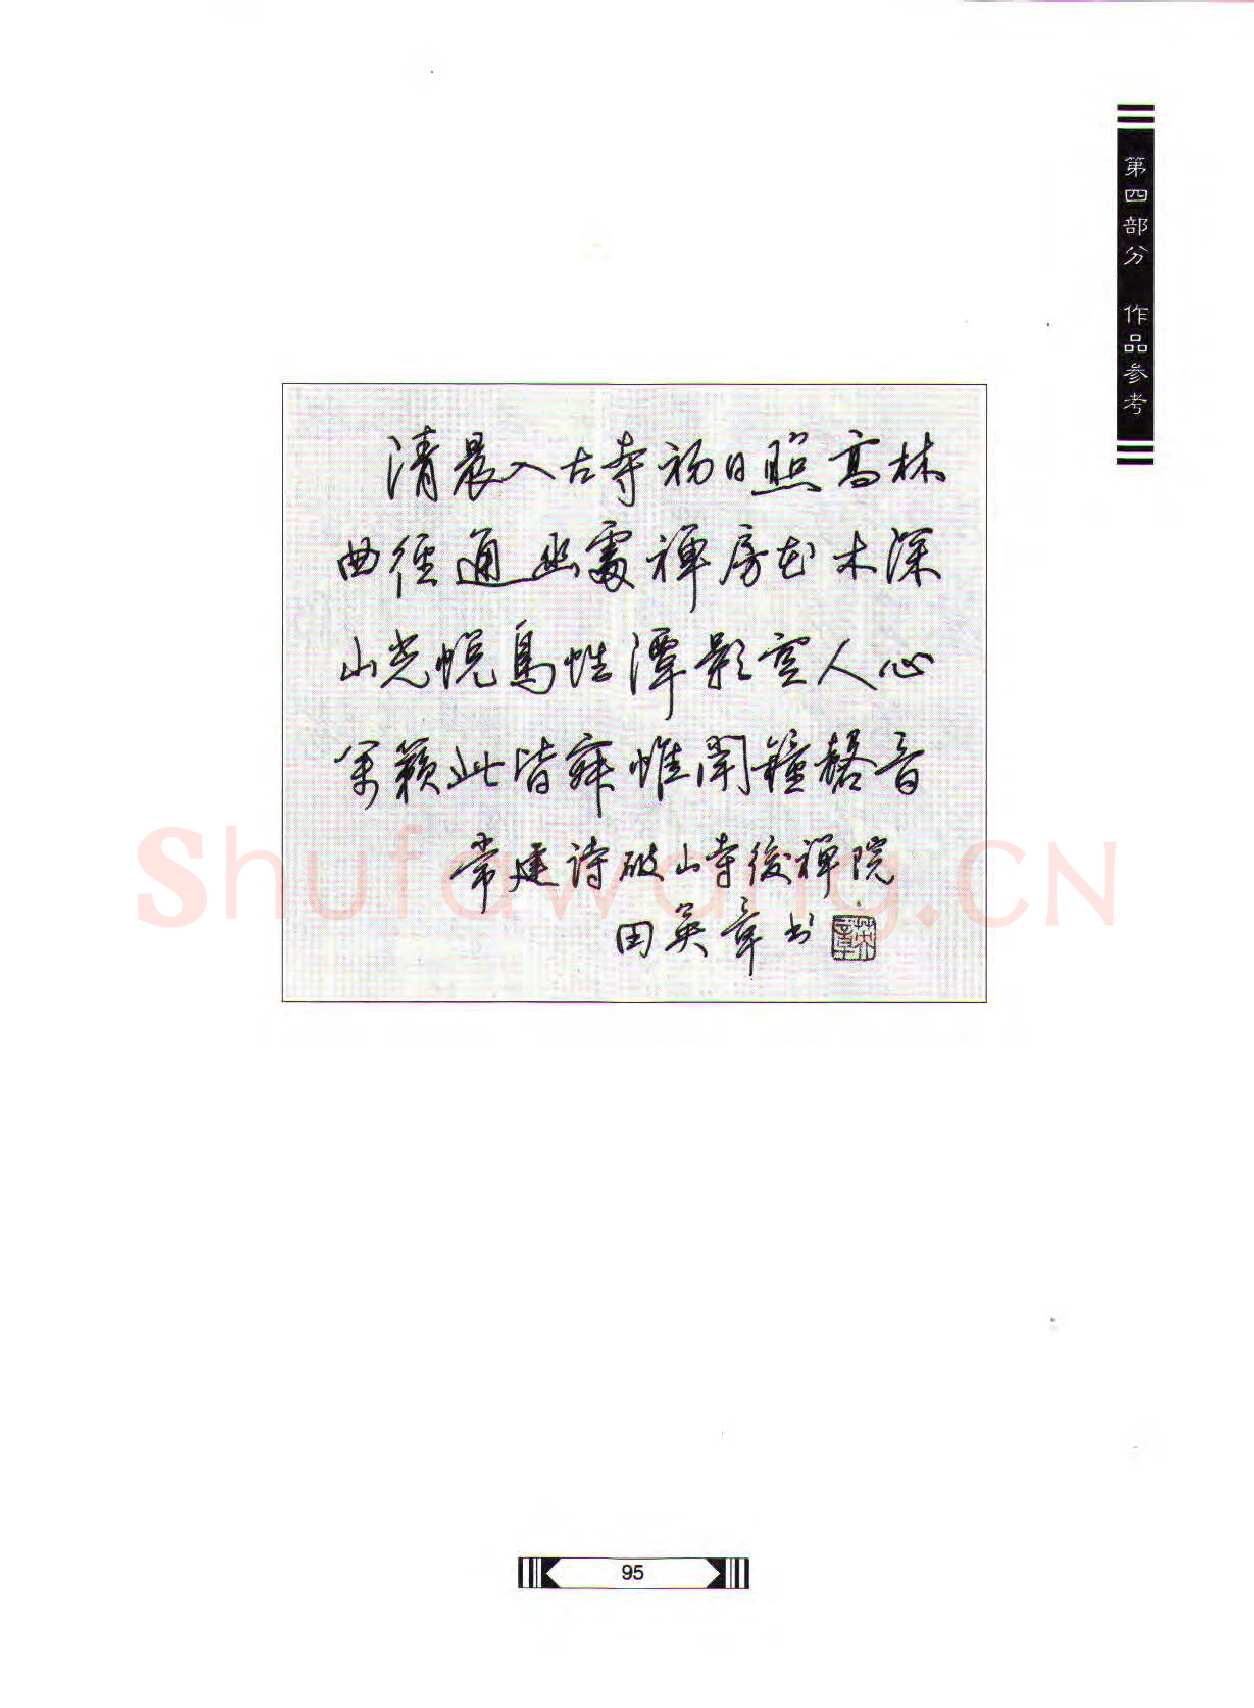 第四部分 作品参考
清晨入古寺初日照高林
曲径通幽處禪房花木深
山光悦鳥性潭影空人心
萬籟此皆寂惟聞鐘磬音
常建诗破山寺後禪院
田英章书
英章
Shufawang.CN
95